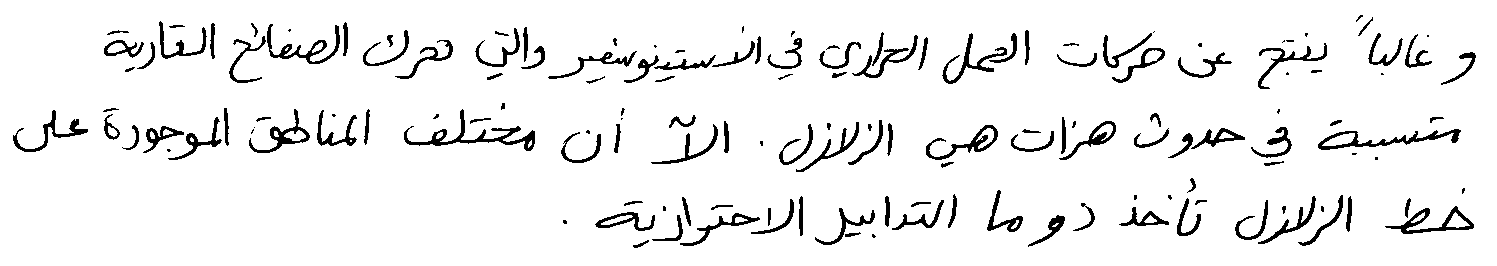 و غالباً ينتج عن حركات الحمل الحراري في الاستينوسفير والتي تحرك الصفائح القارية
متسببة في حدوث هزات هي الزلازل. الآ أن مختلف المناطق الموجودة على
خط الزلازل تأخذ دوما التدابير الاحترازية.